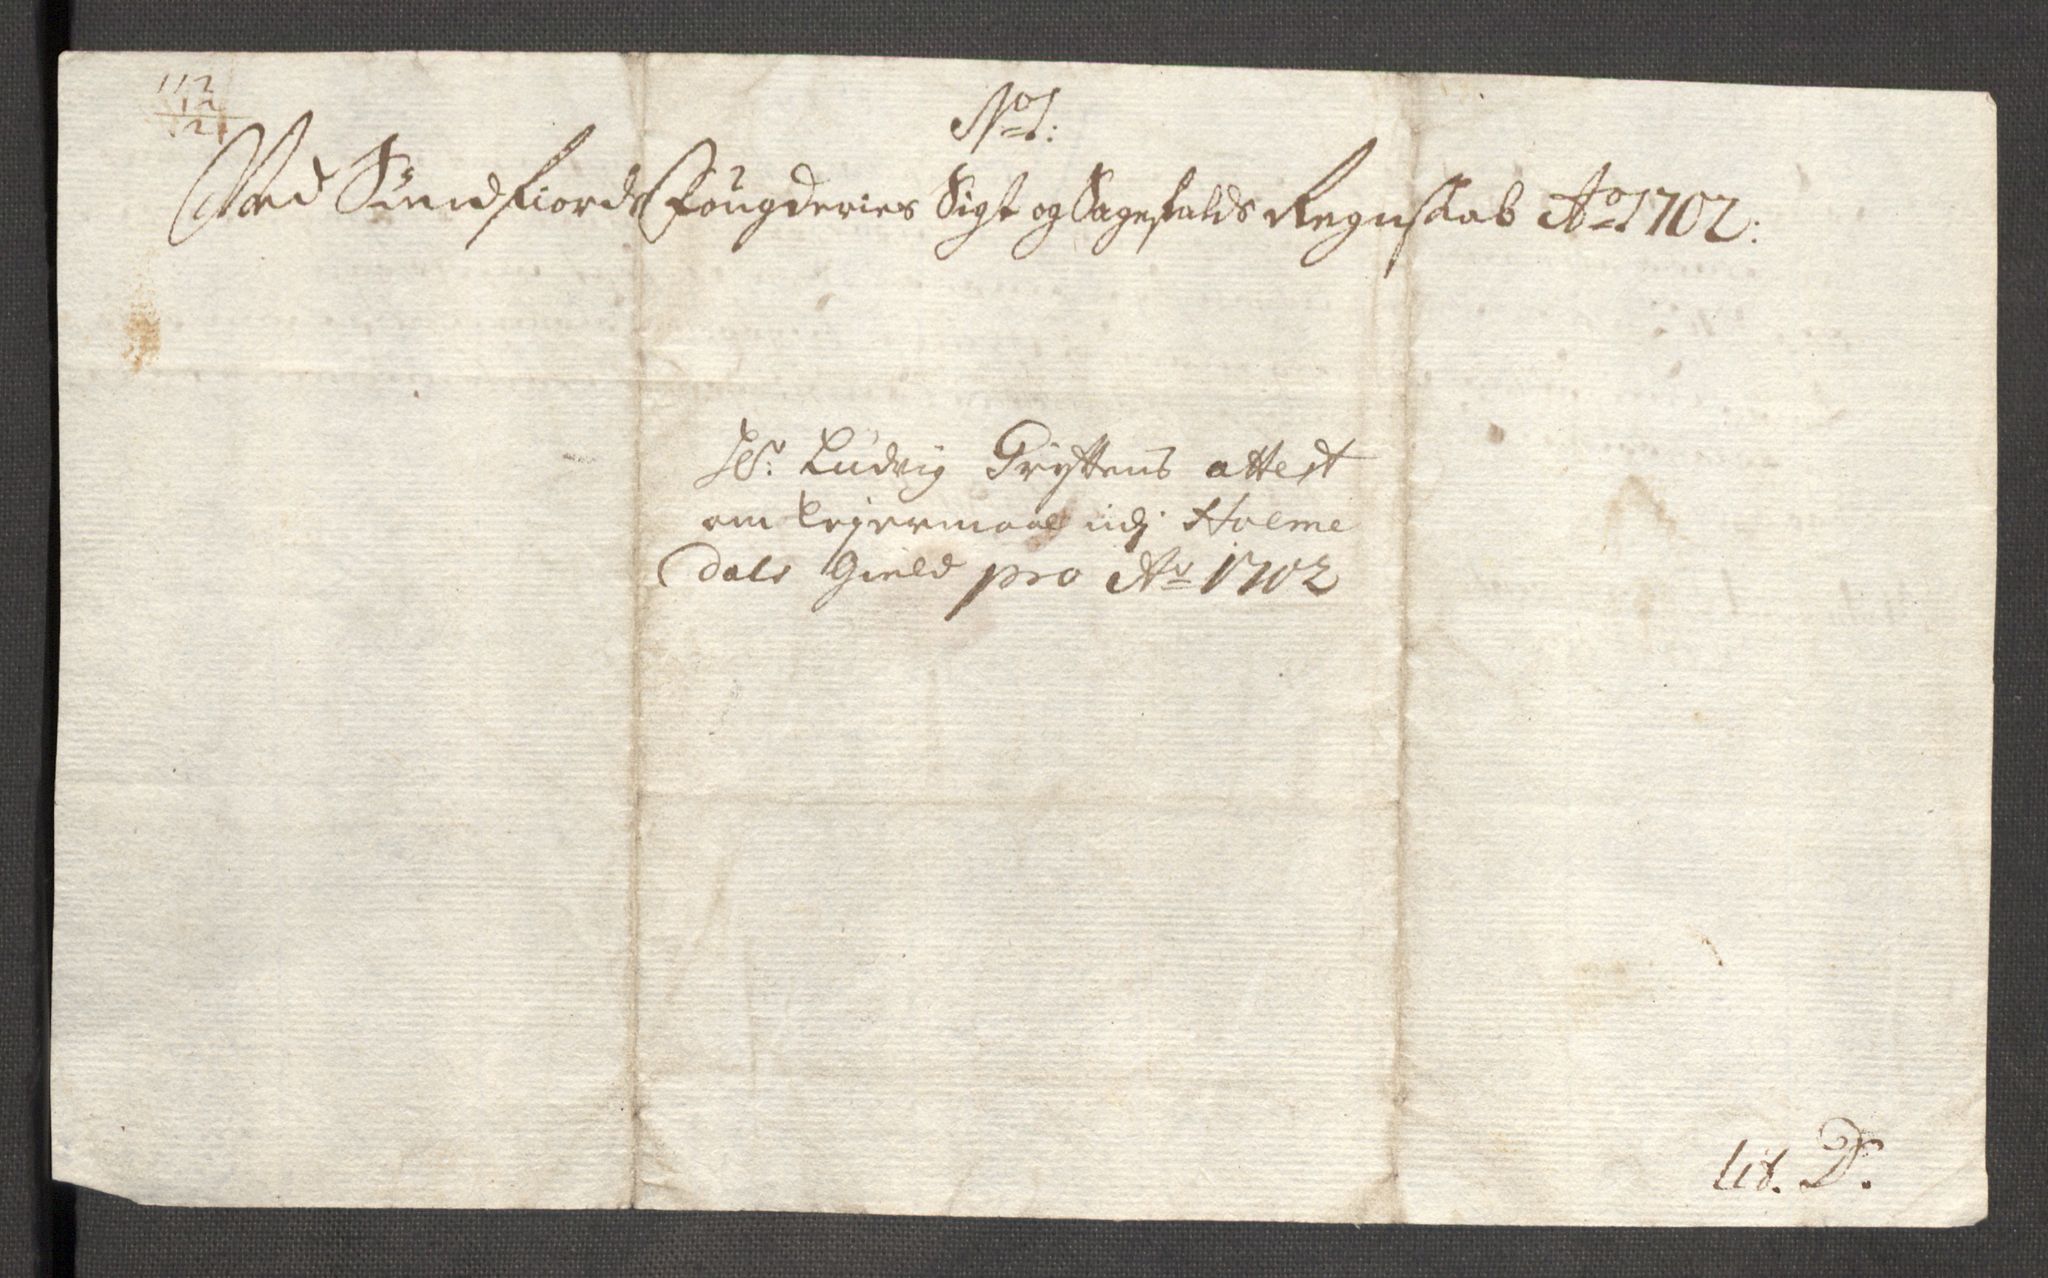 112
12
12
No 1:
Ved Sundfiords Fougderies Sigt og Sagefalds Regnskab Ao 1702:
Hr: Ludvig Tryttens attest
om leyermaal udj Holme
dals Gield pro Ao 1702
Lit. D.